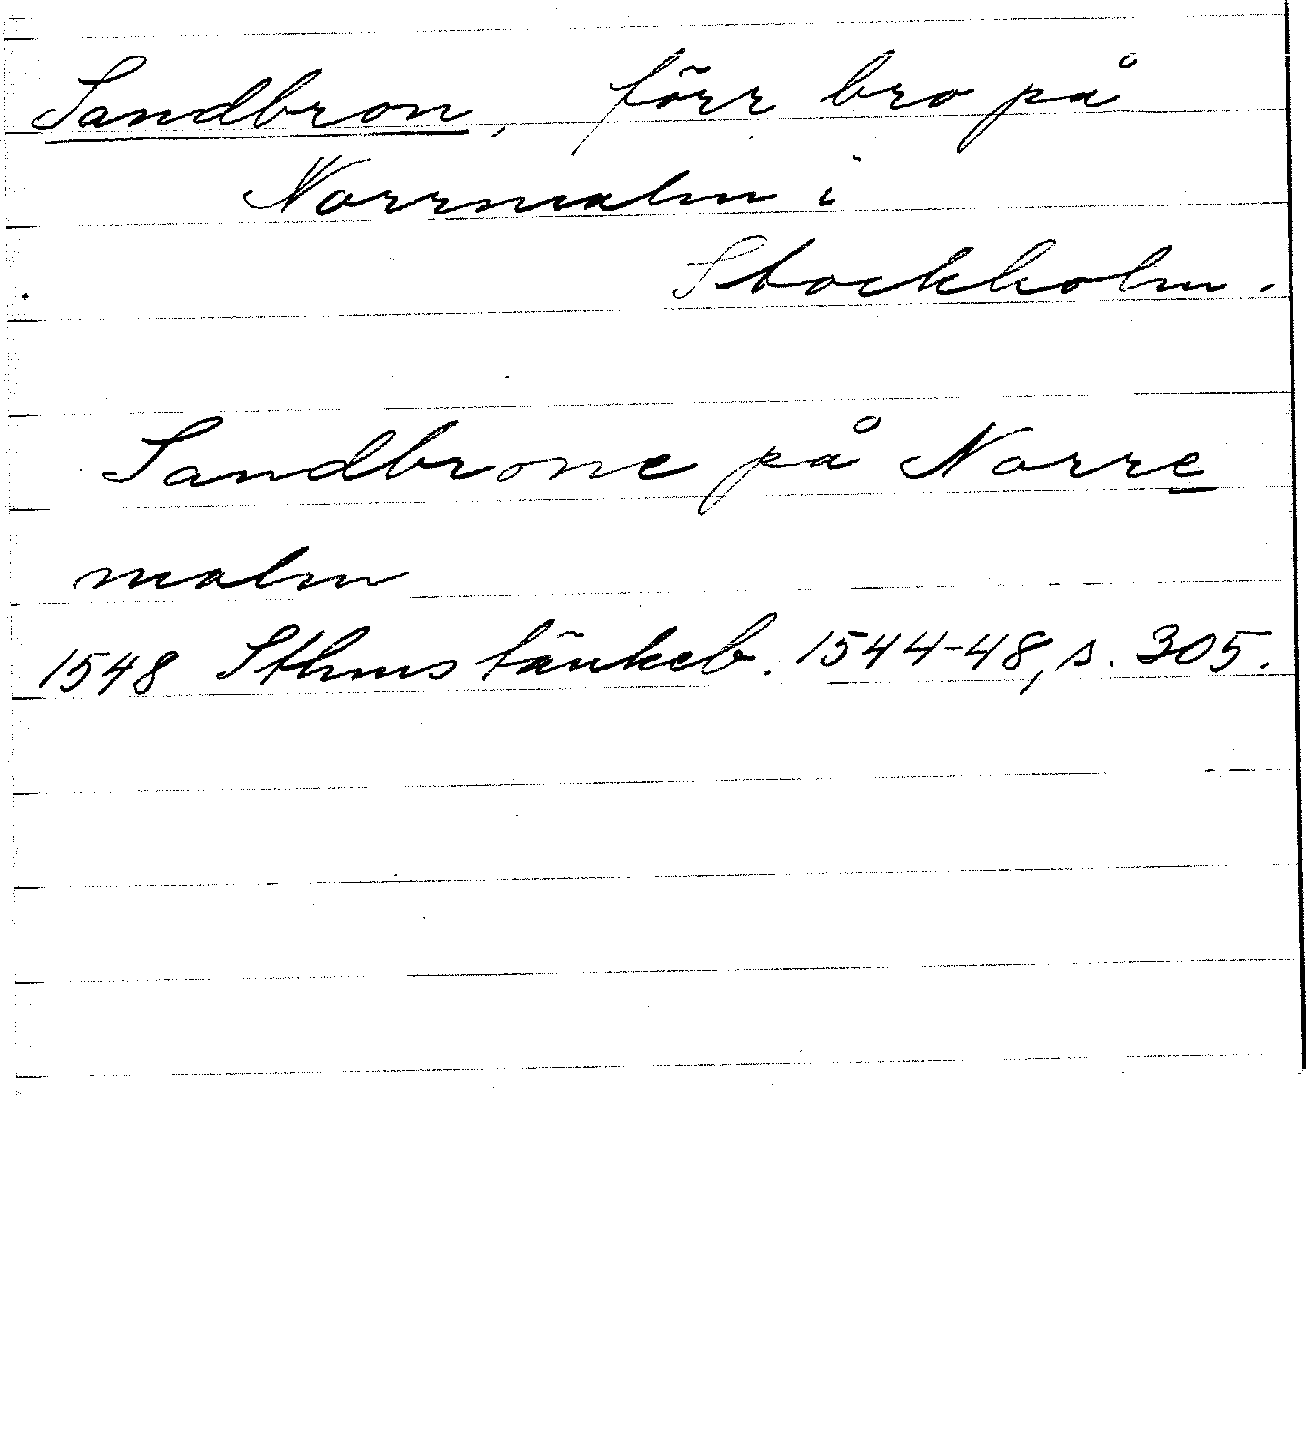 Sandbron, förr bro på
Norrmalm i
Stockholm.
Sandbrone på Norre
malm
1548 Sthms tänkeb. 1544-48, s. 305.